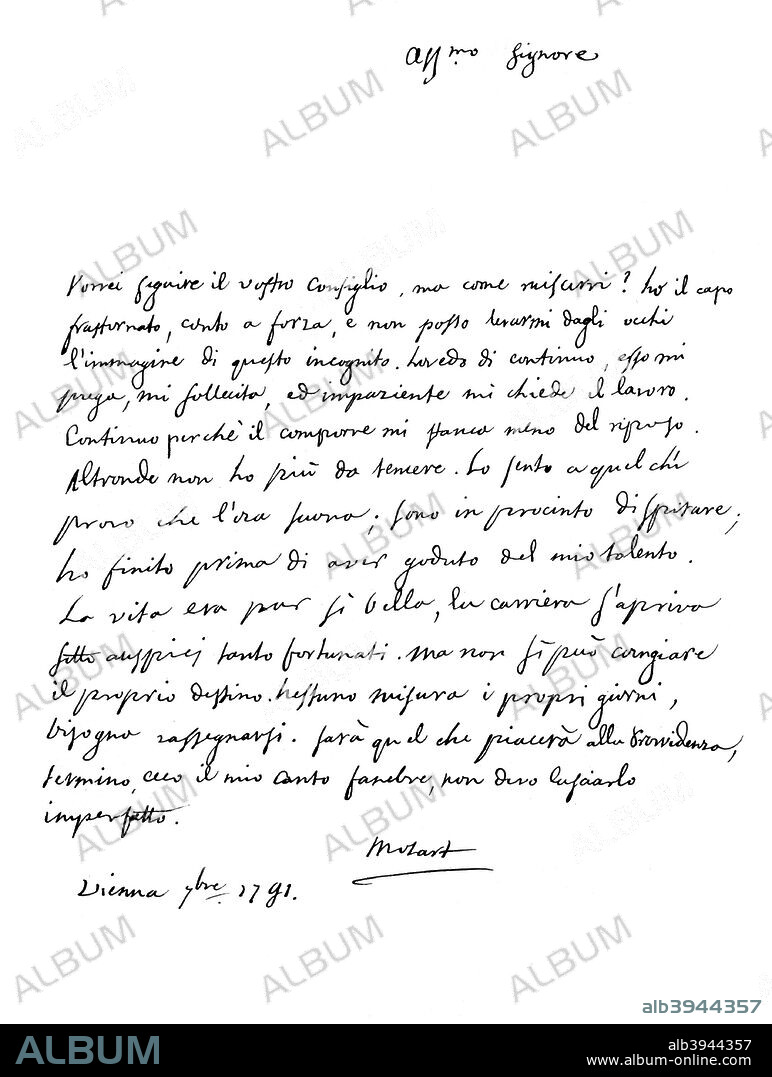 Aff.mo Signore
Vorrei seguire il vostro Consiglio, ma come riuscirvi? ho il capo
frastornato, conto a forza, e non posso levarmi dagli occhi
l'immagine di questo incognito. Lo vedo di continuo, esso mi
prega, mi sollecita, ed impaziente mi chiede il lavoro.
Continuo perchè il comporre mi stanca meno del riposo.
Altronde non ho più da temere. Lo sento a quel chi
provo che l'ora suona; sono in procinto di spirare;
ho finito prima di aver goduto del mio talento.
La vita era pur sì bella, la carriera s'apriva
sotto auspici tanto fortunati. ma non si può cangiare
il proprio destino. nessuno misura i propri giorni,
bisogna rassegnarsi. sarà quel che piacerà alla Provvidenza,
termino, ecco il mio canto funebre, non devo lasciarlo
imperfetto.
Mozart
Vienna 7bre 1791.
ALBUM
alb3944357
ALBUM
alb3944357
www.album-online.com